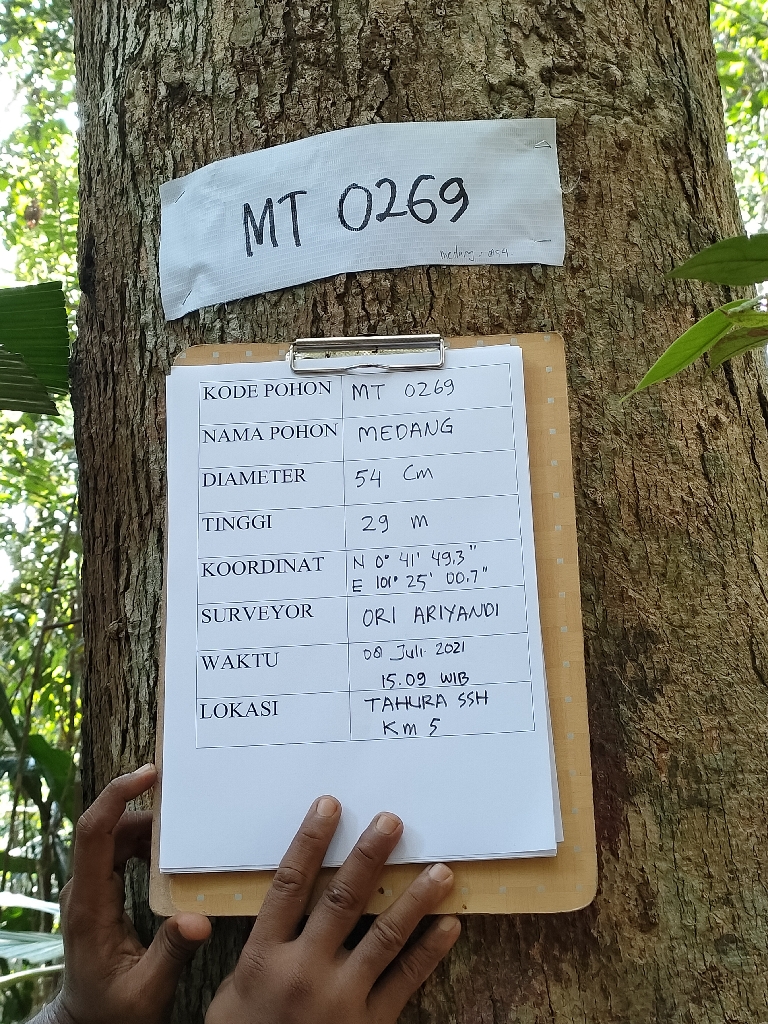 MT 0269
KODE POHON MT 0269
NAMA POHON MEDANG
DIAMETER 54 Cm
TINGGI 29 m
KOORDINAT N 0° 41' 49.3"
E 101° 25' 00.7"
SURVEYOR ORI ARIYANDI
WAKTU 08 Juli 2021
15.09 WIB
LOKASI TAHURA SSH
Km 5